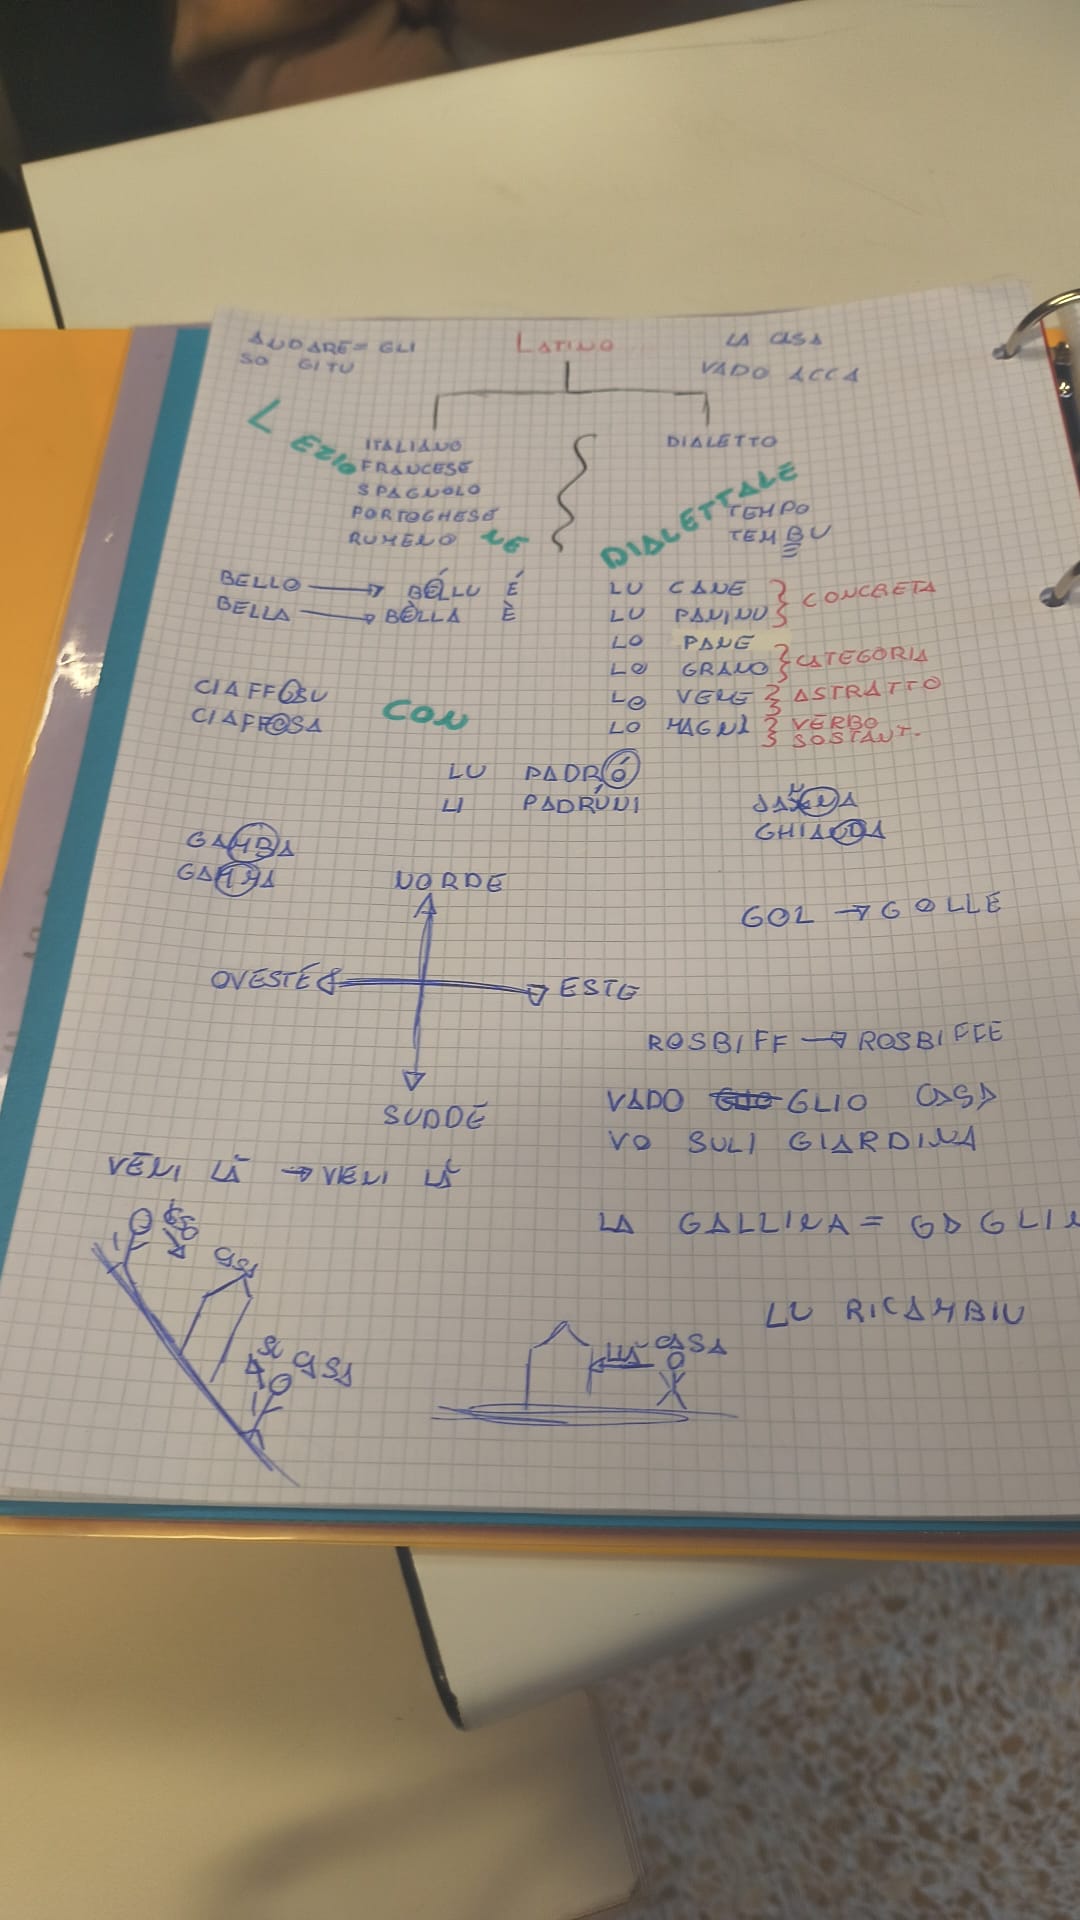 ANDARE = GLI
SO GITU
LATINO
LA CASA
VADO ACCA
LEZIONE DIALETTALE CON
ITALIANO
FRANCESE
SPAGNOLO
PORTOGHESE
RUMENO
DIALETTO
TEMPO
TEMBU
BELLO → BÉLLU É
BELLA → BÈLLA È
LU CANE
LU PANINU
CONCRETA
LO PANE
LO GRANO
CATEGORIA
LO VENE
ASTRATTO
LO MAGNÀ
VERBO
SOSTANT.
CIAFFUSU
CIAFFOSA
LU PADRÓ
LI PADRÚNI
GHIANDA
GAMBA
GAMMA
NORDE
OVESTE
ESTE
SUDDE
GOL → GOLLE
ROSBIFF → ROSBIFFE
VADO GLIO CASA
VO SULI GIARDINA
VENI LÀ → VENI LÀ
LA GALLINA =
CASA
SU CASA
LÀ CASA
LU RICAMBIU